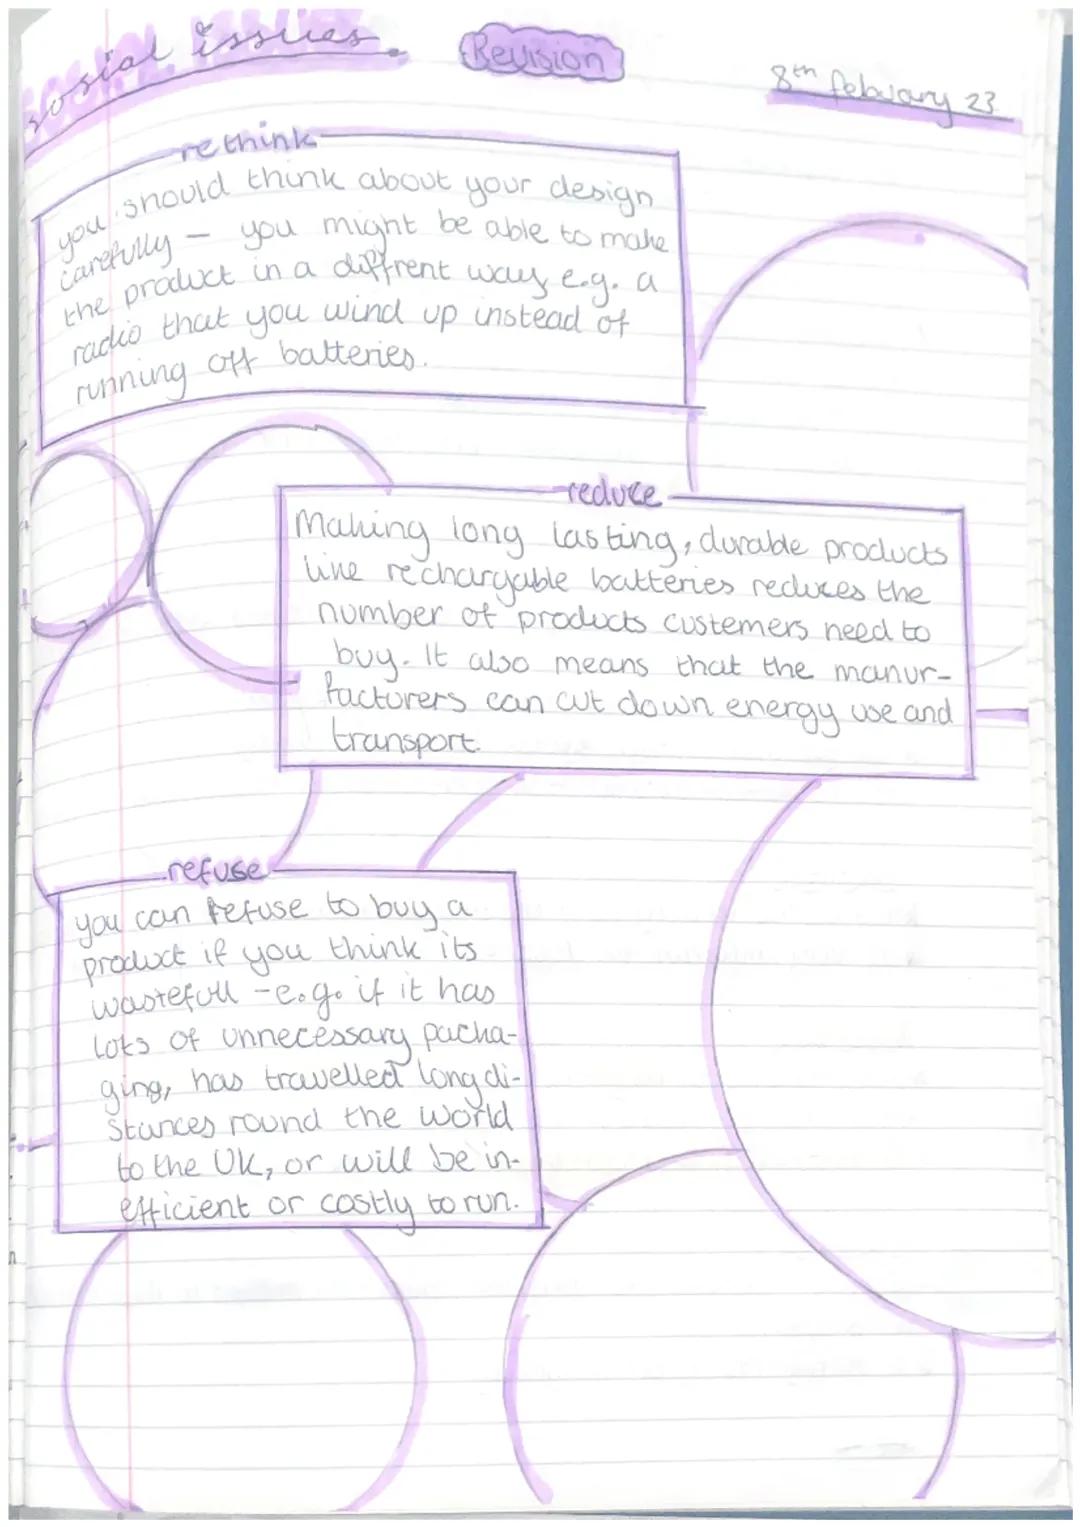 sosial issues.
Revision
8th febuary 23
rethink
you should think about your design
carefully – you might be able to make
the product in a diffrent way e.g. a
radio that you wind up instead of
running off batteries.
reduce
Making long lasting, durable products
like rechargable batteries reduces the
number of products custemers need to
buy. It also means that the manur-
facturers can cut down energy use and
transport.
refuse
you can refuse to buy a
product if you think its
wastefull - e.g. if it has
lots of unnecessary packa-
ging, has travelled long di-
stances round the world
to the UK, or will be in-
efficient or costly to run.